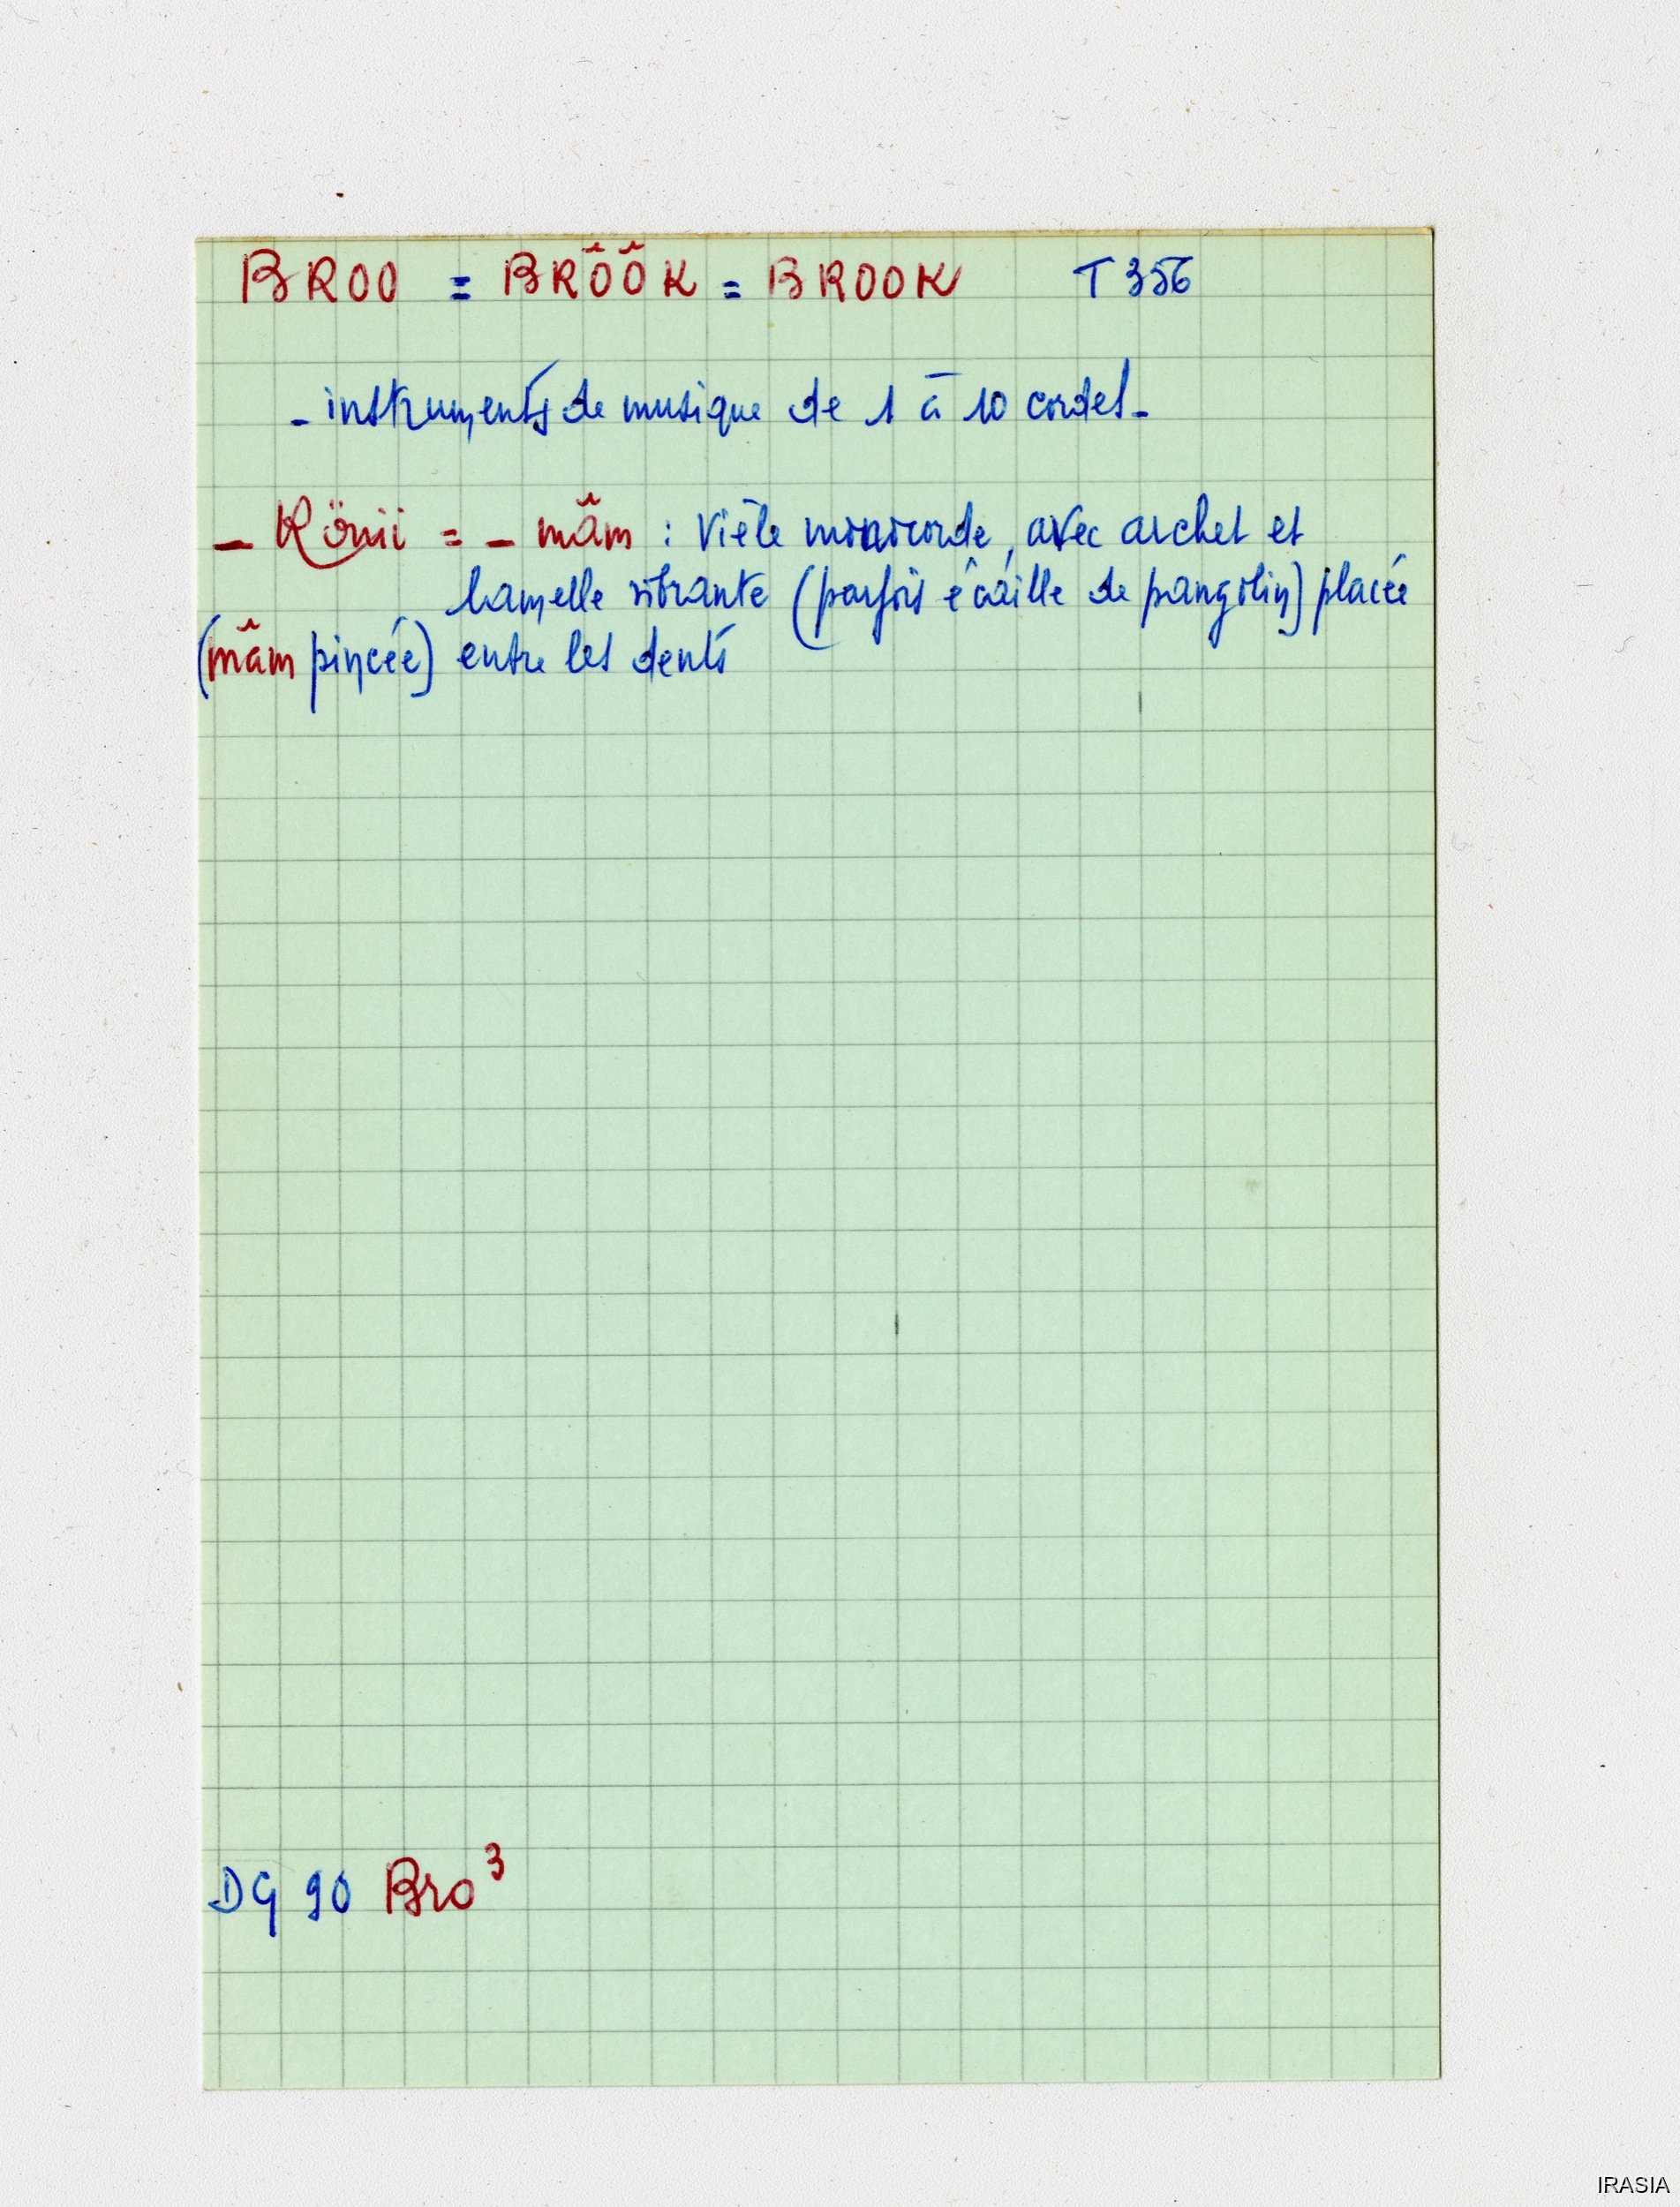 BROO = BRÔÔK = BROOK T 356
- instruments de musique de 1 à 10 cordes -
- Könii = - mâm : Vièle monocorde, avec archet et
lamelle vibrante (parfois écaille de pangolin) placée
(mâm pincée) entre les dents
DG 90 Bro³
IRASIA